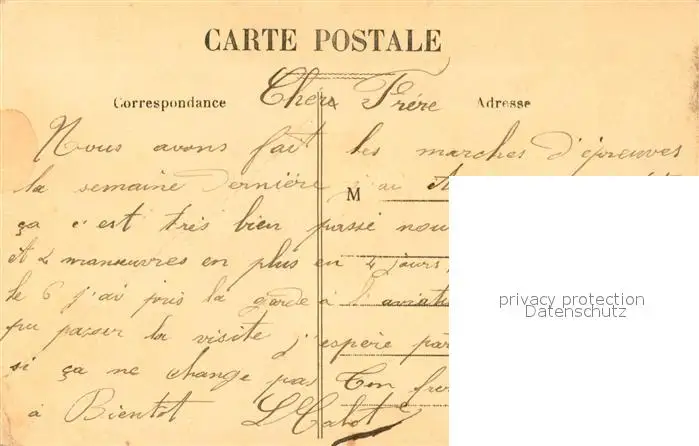 CARTE POSTALE
Correspondance Cher Frére Adresse
Nous avons fait les marches d'épreuves
la semaine Dernière j'ai
M
ça c'est très bien passé nou
et 2 manœuvres en plus en 4 jours,
le 6 j'ai pris la garde à l'aviati
pu passer la visite j'espère par
si ça ne change pas Ton frer
à Bientot L Calot
privacy protection
Datenschutz